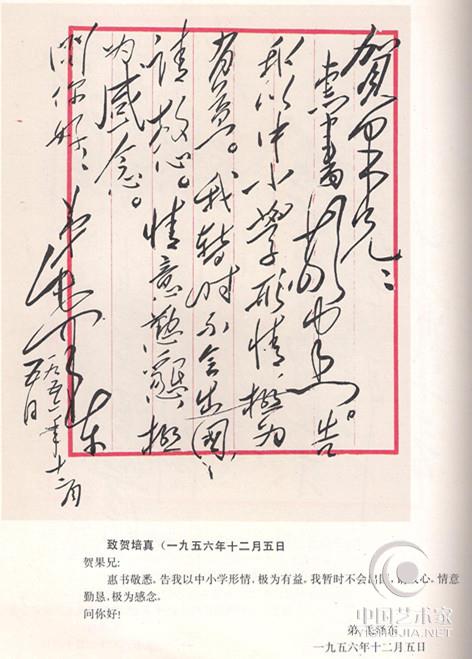 賀果兄：
惠書敬悉。告
我以中小學形情，极为
有益。我暫时不会出國，
请放心。情意懃懇，极
为感念。
问你好！
弟 毛泽东
一九五六年十二月
五日
致贺培真（一九五六年十二月五日
贺果兄：
惠书敬悉。告我以中小学形情，极为有益。我暂时不会出国，请放心。情意
勤恳，极为感念。
问你好！
弟 毛泽东
一九五六年十二月五日
中国艺术家
YISHUJIA.NET